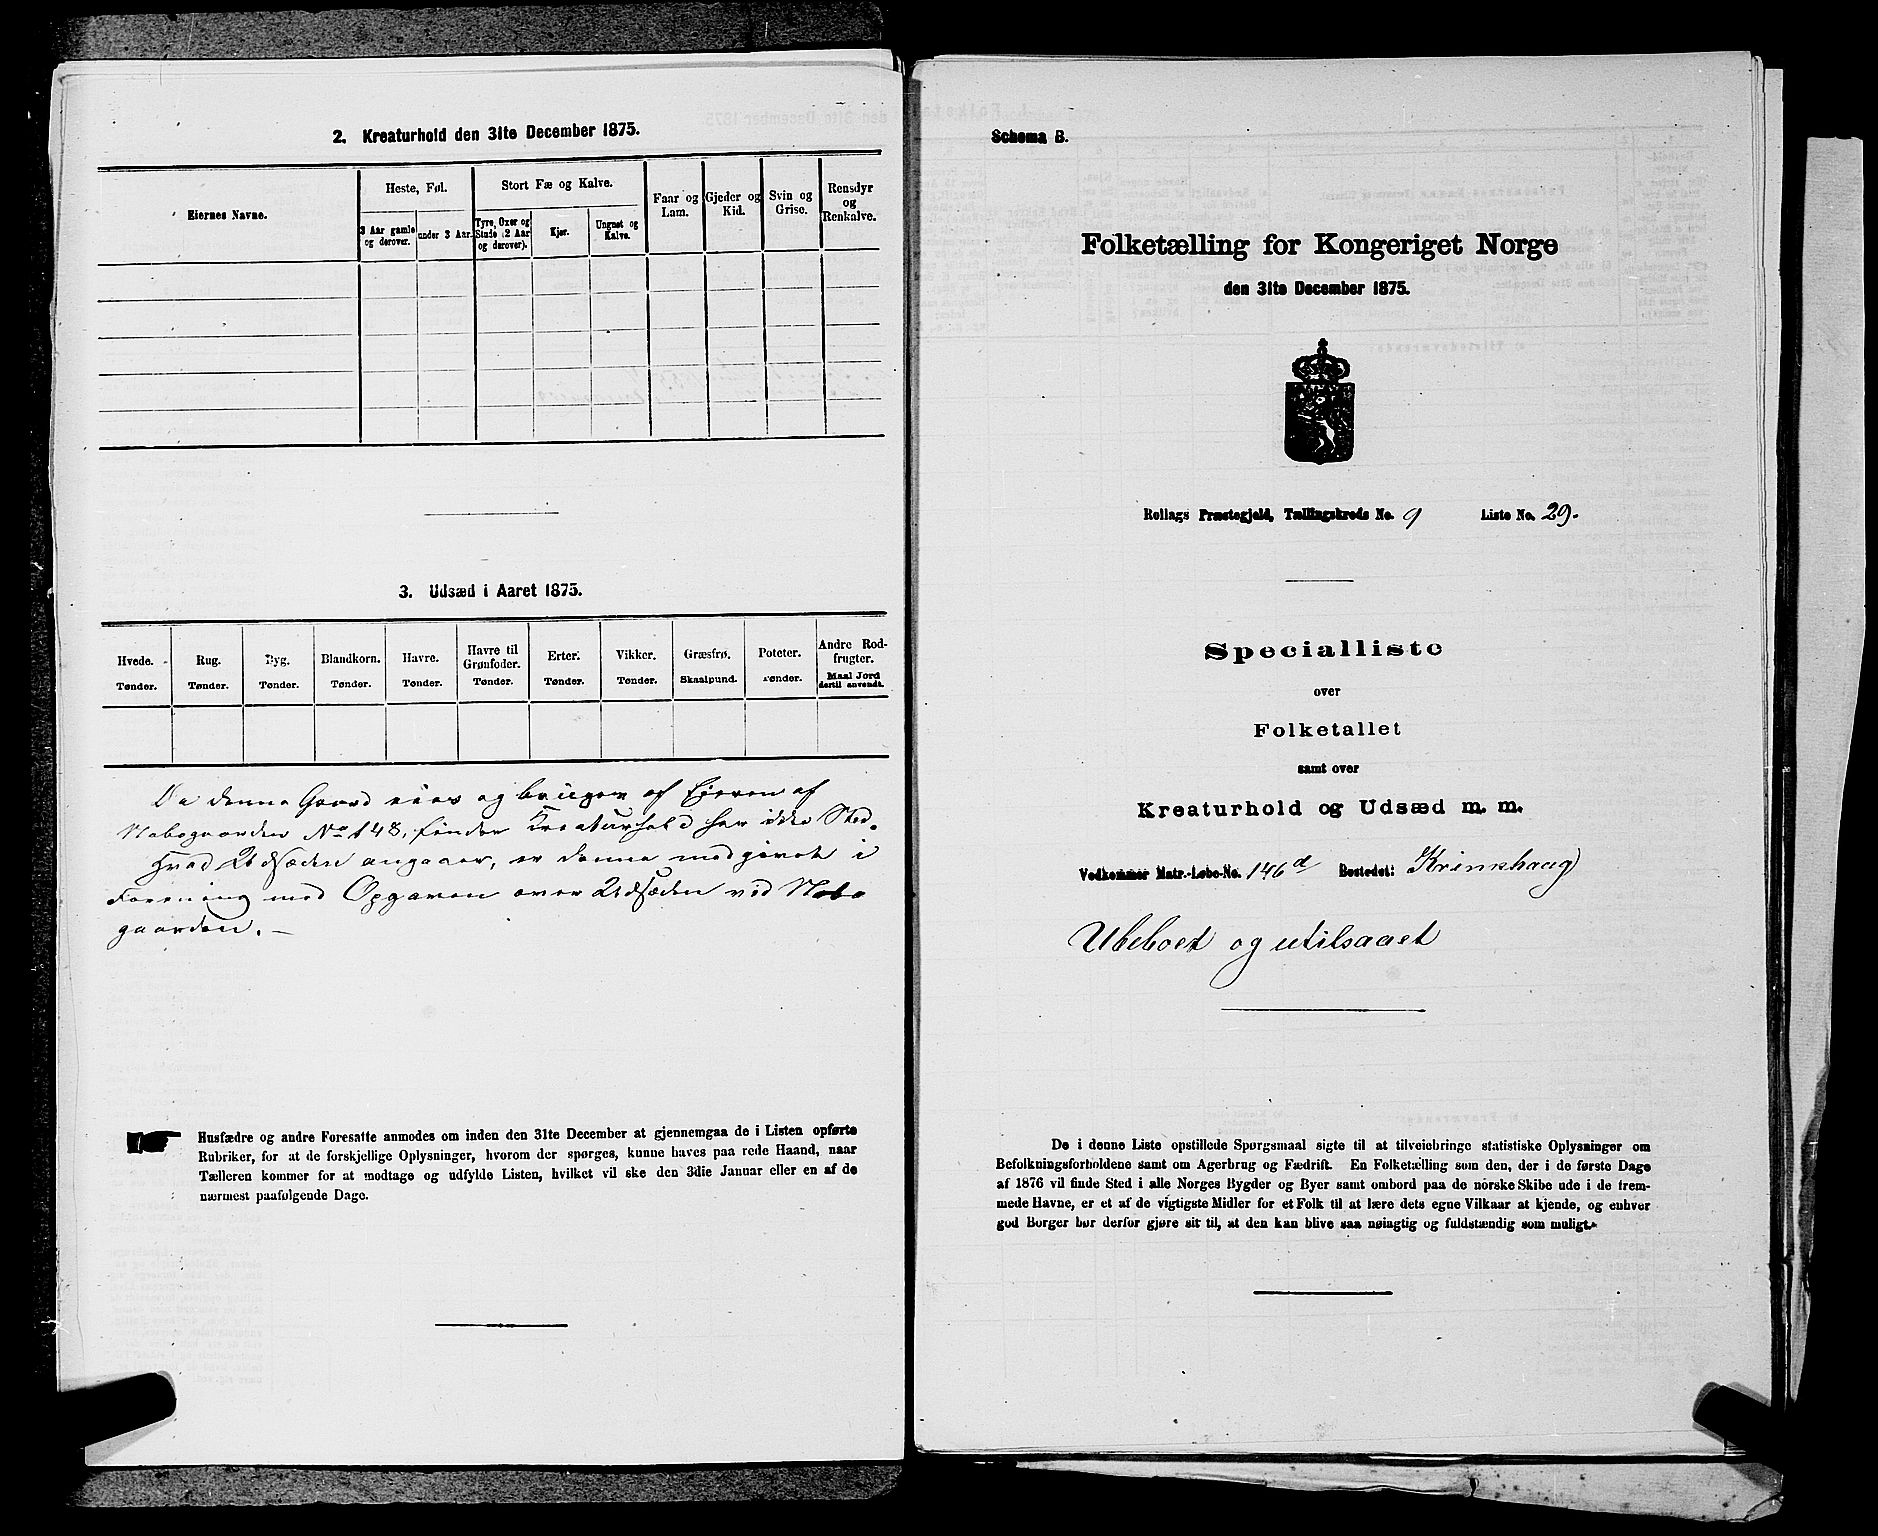 2. Kreaturhold den 31te December 1875.
Eiernes Navne.
Heste, Føl.
Stort Fæ og Kalve.
Faar og Lam.
Gjeder og Kid.
Svin og Grise.
Rensdyr og Renkalve.
3 Aar gamle og derover.
under 3 Aar.
Tyre, Oxer og Stude (2 Aar og derover).
Kjør.
Ungnøt og Kalve.
3. Udsæd i Aaret 1875.
Hvede. Rug. Byg. Blandkorn. Havre. Havre til Grønfoder. Erter. Vikker. Græsfrø. Poteter. Andre Rodfrugter.
Tønder. Tønder. Tønder. Tønder. Tønder. Tønder. Tønder. Tønder. Skaalpund. Tønder. Maal Jord dertil anvendt.
Da denne Gaard eies og bruges af Eieren af
Nabogaarden No 148, finder Kreaturhold her ikke Sted.
Hvad Udsæden angaaer, er denne medgivet i
Forening med Opgaven over Udsæden ved Nabo
gaarden. —
Husfædre og andre Foresatte anmodes om inden den 31te December at gjennemgaa de i Listen opførte
Rubriker, for at de forskjellige Oplysninger, hvorom der spørges, kunne haves paa rede Haand, naar
Tælleren kommer for at modtage og udfylde Listen, hvilket vil ske den 3die Januar eller en af de
nærmest paafølgende Dage.
Schema B.
Folketælling for Kongeriget Norge
den 31te December 1875.
Rollags Præstegjeld, Tællingskreds No. 9 Liste No. 29.
Specialliste
over
Folketallet
samt over
Kreaturhold og Udsæd m. m.
Vedkommer Matr.-Løbe-No. 146d Bostedet: Krinshaug
Ubeboet og utilsaaet
De i denne Liste opstillede Spørgsmaal sigte til at tilveiebringe statistiske Oplysninger om
Befolkningsforholdene samt om Agerbrug og Fædrift. En Folketælling som den, der i de første Dage
af 1876 vil finde Sted i alle Norges Bygder og Byer samt ombord paa de norske Skibe ude i de frem-
mede Havne, er et af de vigtigste Midler for et Folk til at lære dets egne Vilkaar at kjende, og enhver
god Borger bør derfor gjøre sit til, at den kan blive saa nøiagtig og fuldstændig som muligt.